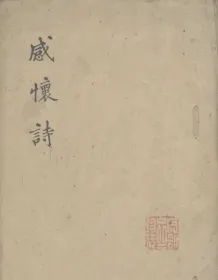 感懷詩